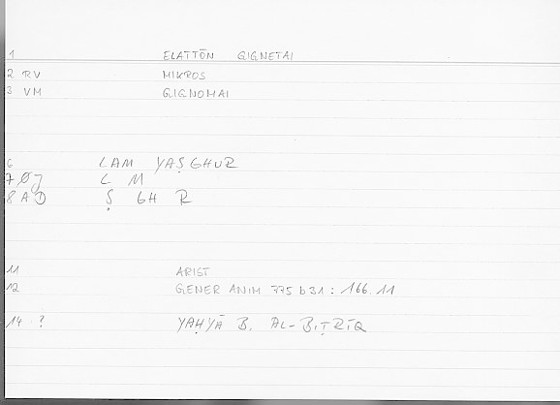 1 ELATTŌN GIGNETAI
2 RV MIKROS
3 VM GIGNOMAI
6 LAM YAṢGHUR
7 Ø J L M
8 A ① Ṣ GH R
11 ARIST
12 GENER ANIM 775 b 31 : 166.11
14 ? YAḤYĀ B. AL-BIṬRĪQ